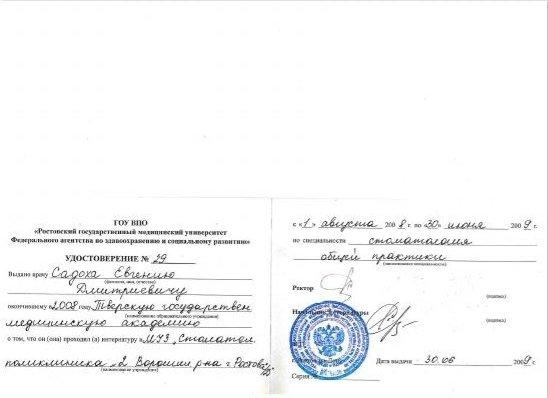 ГОУ ВПО
«Ростовский государственный медицинский университет
Федерального агентства по здравоохранению и социальному развитию»
УДОСТОВЕРЕНИЕ № 29
Выдано врачу Садоха Евгению
(фамилия, имя, отчество)
Дмитриевичу
окончившему 2008 году Тверскую государствен
(наименование образовательного учреждения)
медицинскую академию
о том, что он (она) проходил (а) интернатуру в МУЗ „Стоматол.
поликлиника „2 Ворошил. р-на г. Ростова
(наименование учреждения)
с «1» августа 2008 г. по 30 июня 2009 г.
по специальности стоматология
общей практики
Ректор
(подпись)
Начальник интернатуры
(подпись)
Дата выдачи 30.06 2009 г.
Серия